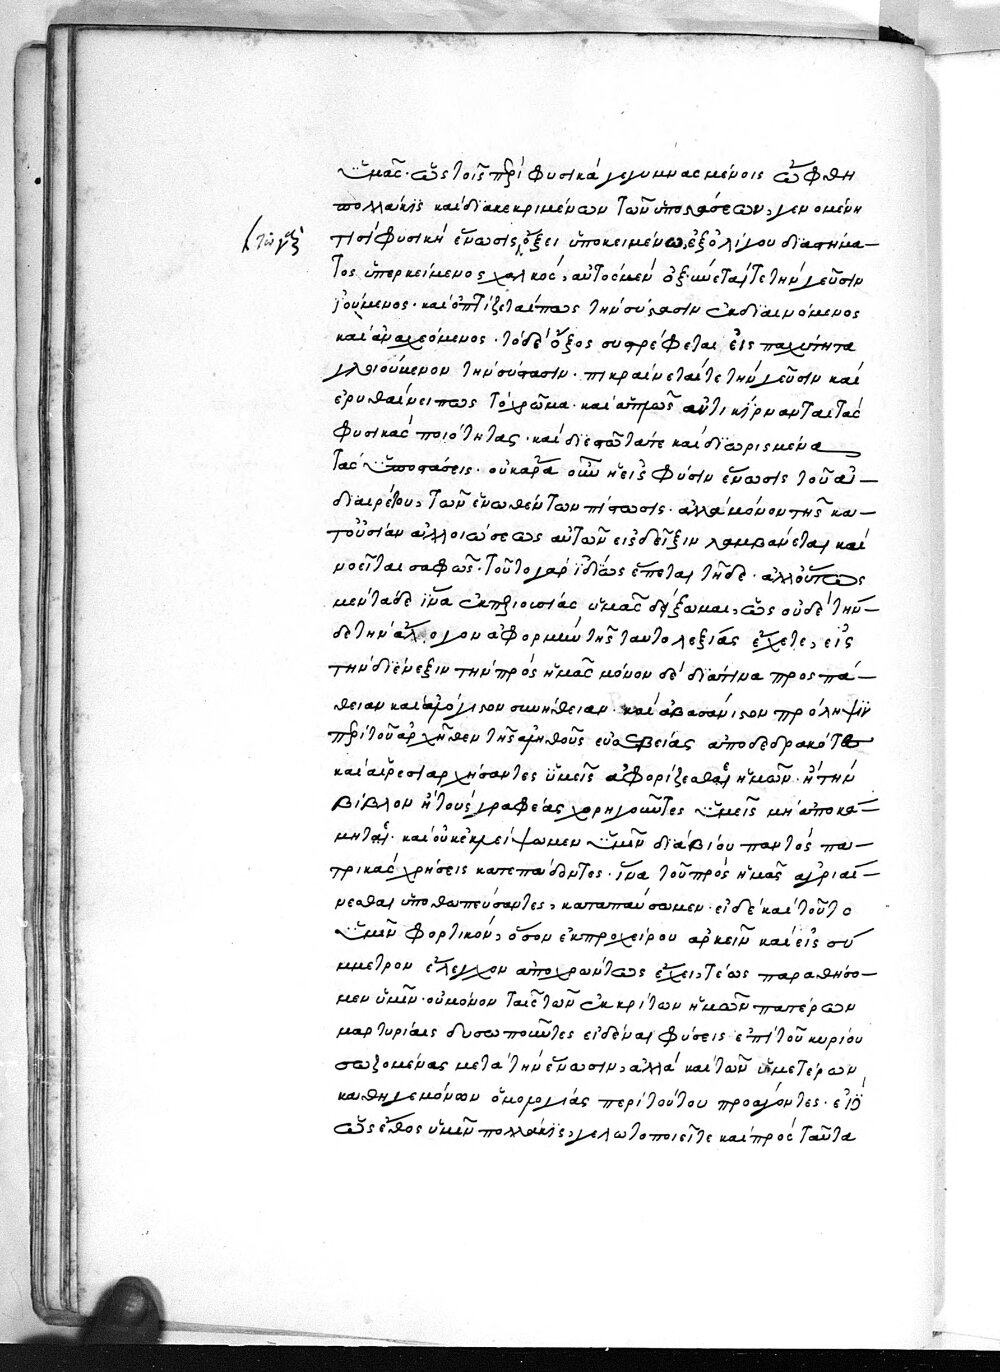 ὑμᾶς· ὡς τοῖς περὶ φυσικὰ γεγυμνασμένοις ὤφθη
πολλάκις καὶ διακεκριμένων τῶν ὑποστάσεων, γενομένη
τισὶ φυσικὴ ἕνωσις, ὄξει ὑποκειμένω, ἐξ ὀλίγου διαστήμα-
τος ὑπερκείμενος χαλκὸς, αὐτὸς μὲν τε τὴν γεῦσιν
ἰούμενος· καὶ πως τὴν σύστασιν ἐκδιαινόμενος
καὶ ἀναχεόμενος· τὸ δὲ ὄξος συστρέφεται εἰς παχύτητα
γλοιούμενον τὴν σύστασιν· πικραίνεταί τε τὴν γεῦσιν καὶ
ἐρυθαίνει πως τὸ χρῶμα· καὶ ἁπλῶς ἀντικίρνανται τὰς
φυσικὰς ποιότητας· καὶ διεστῶτα τε καὶ διωρισμένα
τὰς ὑποστάσεις· οὐκ ἄρα οὖν ἡ εἰς φύσιν ἕνωσις τοῦ ἀ-
διαιρέτου, τῶν ἑνωθέντων πίστωσις· ἀλλὰ μόνον τῆς κα-
τ' οὐσίαν ἀλλοιώσεως αὐτῶν εἰς δεῖξιν λαμβάνεται καὶ
νοεῖται σαφῶς· τοῦτο γὰρ ἰδίως ἕπεται τῆδε· ἀλλ' οὕτως
μὲν ταῦδε ἵνα ἐκ περιουσίας ὑμᾶς δείξωμαι, ὡς οὐδὲ τήν-
δε τὴν ἄλογον ἀφορμὴν τῆς ταυτολεξίας ἔχετε, εἰς
τὴν διένεξιν τὴν πρὸς ἡμᾶς μόνον δὲ διά τινα προσπά-
θειαν καὶ ἀλόγιστον συνήθειαν· καὶ ἀβασάνιστον πρόληψιν
περὶ τοῦ ἀρχῆθεν τῆς ἀληθοῦς εὐσεβείας ἀποδεδρακότος
καὶ αἱρεσιαρχήσαντος ὑμεῖς ἀφορίζεσθαι ἡμῶν· ἢ τὴν
βίβλον ἢ τοὺς γραφέας χορηγοῦντες ὑμεῖς μὴ ἀποκά-
μητε· καὶ οὐκ ἐκλείψωμεν ὑμῖν διὰ βίου παντὸς πα-
τρικὰς χρήσεις κατεπάδοντες· ἵνα τοῦ πρὸς ἡμᾶς ἀγριαί-
νεσθαι ὑποθωπεύσαντες, καταπαύσωμεν· εἰ δὲ καὶ τοῦτο
ὑμῖν φορτικὸν, ὅσον ἐκ προχείρου ἀρκεῖν καὶ εἰς σύ
μμετρον ἔλεγχον ἀποχρώντως ἔχει, τέως παραθήσο-
μεν ὑμῖν· οὐ μόνον ταῖς τῶν ἐκκρίτων ἡμῶν πατέρων
μαρτυρίαις δυσωποῦντες εἰδέναι φύσεις ἐπὶ τοῦ κυρίου
σωζομένας μετὰ τὴν ἕνωσιν, ἀλλὰ καὶ τῶν ὑμετέρων
καθηγεμόνων ὁμολογίας περὶ τούτου προάγοντες·
ὡς ἔθος ὑμῖν πολλάκις, γελωτοποιεῖτε καὶ πρὸς ταῦτα